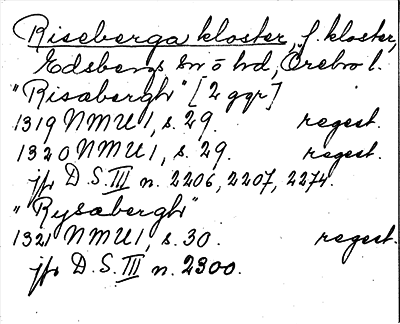 Riseberga kloster, f. kloster,
Edsbergs sn o hd, Örebro l.
"Risabergh" [2 ggr]
1319 NMU 1, s. 29. regest.
1320 NMU 1, s. 29. regest.
jfr D.S. III n. 2206, 2207, 2274.
"Rysabergh"
1321 NMU 1, s. 30. regest.
jfr D.S. III n. 2300.